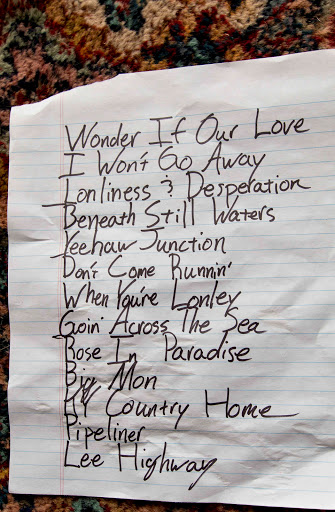 Wonder If Our Love
I Won't Go Away
Lonliness & Desperation
Beneath Still Waters
Yeehaw Junction
Don't Come Runnin'
When You're Lonley
Goin' Across The Sea
Rose In Paradise
Big Mon
My Country Home
Pipeliner
Lee Highway